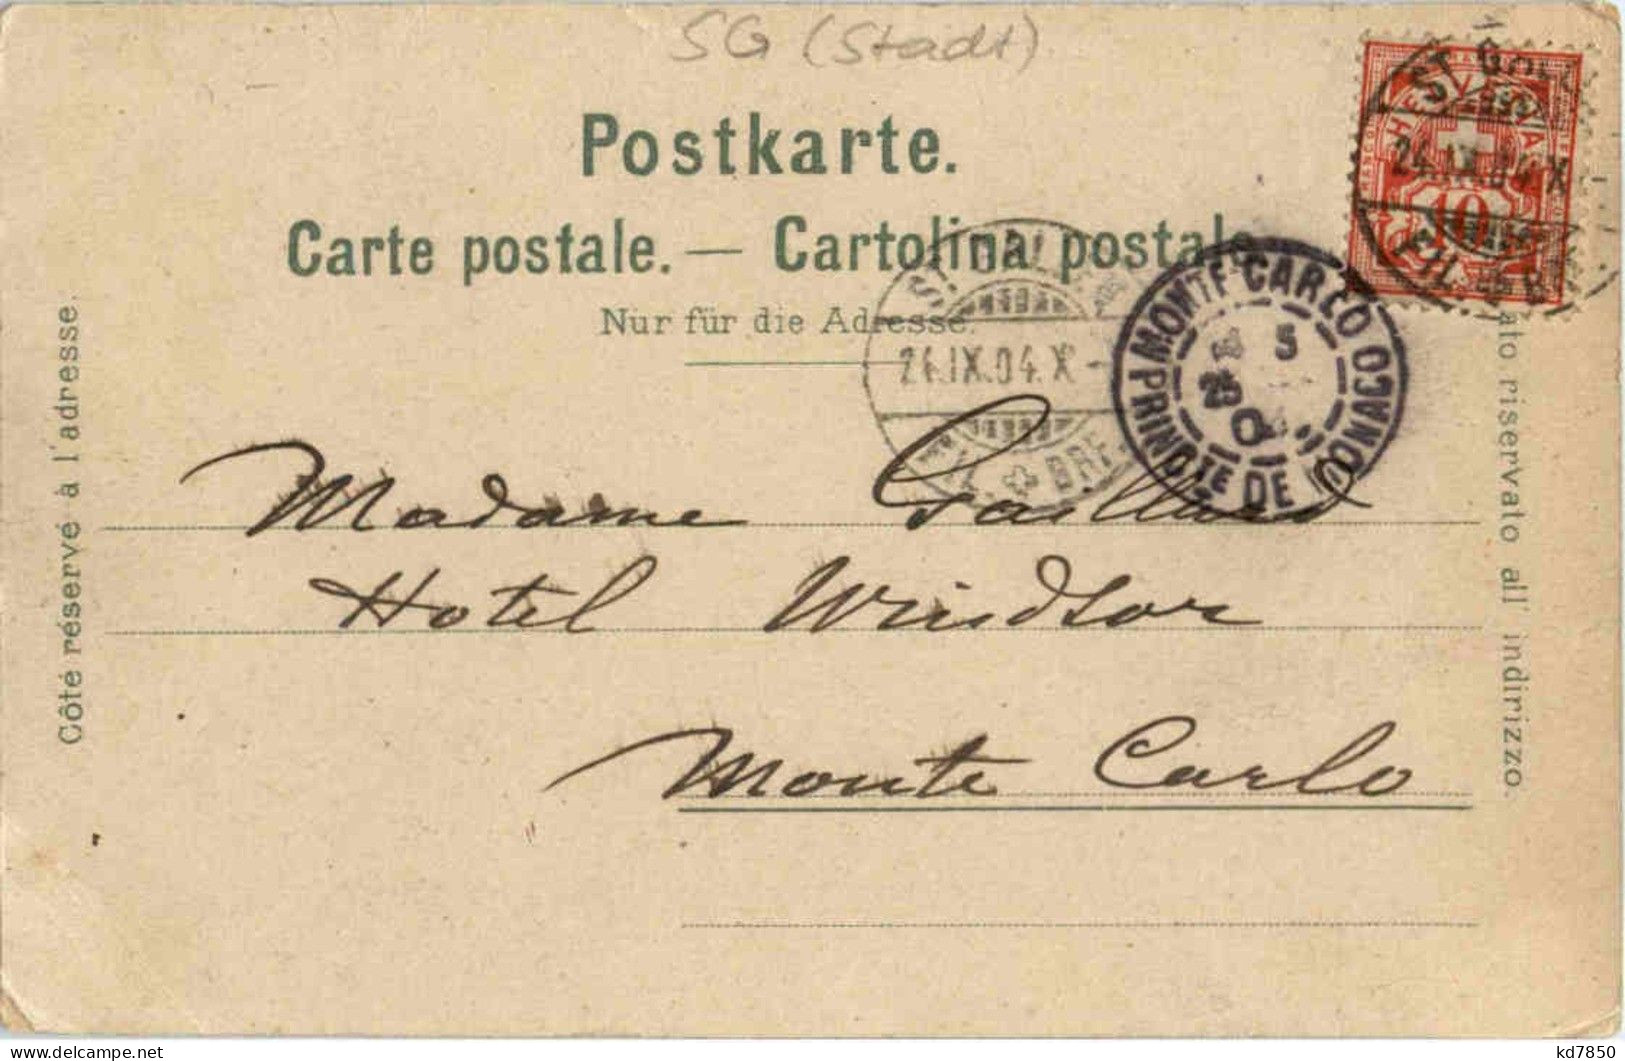 SG (Stadt)
Postkarte.
Carte postale. — Cartolina postale
Nur für die Adresse.
Côté réservé à l'adresse.
riservato all' indirizzo.
HELVETIA
10
ST. GALLEN
24.IX.04.X
FIL. BR
ST. GALLEN
24.IX.04.X-
FIL.
MONTE CARLO
5
25
PRINC.TE DE MONACO
Madame Gaillard
Hotel Windsor
Monte Carlo
kd7850